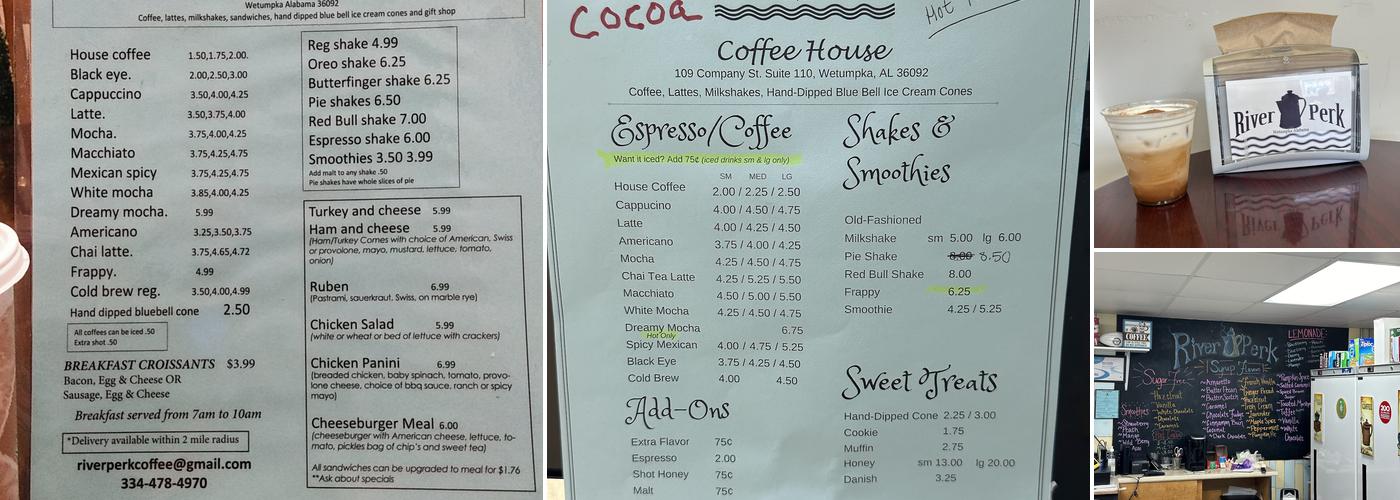 Wetumpka Alabama 36092
Coffee, lattes, milkshakes, sandwiches, hand dipped blue bell ice cream cones and gift shop
House coffee 1.50,1.75,2.00.
Black eye. 2.00,2.50,3.00
Cappuccino 3.50,4.00,4.25
Latte. 3.50,3.75,4.00
Mocha. 3.75,4.00,4.25
Macchiato 3.75,4.25,4.75
Mexican spicy 3.75,4.25,4.75
White mocha 3.85,4.00,4.25
Dreamy mocha. 5.99
Americano 3.25,3.50,3.75
Chai latte. 3.75,4.65,4.72
Frappy. 4.99
Cold brew reg. 3.50,4.00,4.99
Hand dipped bluebell cone 2.50
All coffees can be iced .50
Extra shot .50
BREAKFAST CROISSANTS $3.99
Bacon, Egg & Cheese OR
Sausage, Egg & Cheese
Breakfast served from 7am to 10am
*Delivery available within 2 mile radius
riverperkcoffee@gmail.com
334-478-4970
Reg shake 4.99
Oreo shake 6.25
Butterfinger shake 6.25
Pie shakes 6.50
Red Bull shake 7.00
Espresso shake 6.00
Smoothies 3.50 3.99
Add malt to any shake .50
Pie shakes have whole slices of pie
Turkey and cheese 5.99
Ham and cheese 5.99
(Ham/Turkey Comes with choice of American, Swiss
or provolone, mayo, mustard, lettuce, tomato,
onion)
Ruben 6.99
(Pastrami, sauerkraut, Swiss, on marble rye)
Chicken Salad 5.99
(white or wheat or bed of lettuce with crackers)
Chicken Panini 6.99
(breaded chicken, baby spinach, tomato, provo-
lone cheese, choice of bbq sauce, ranch or spicy
mayo)
Cheeseburger Meal 6.00
(cheeseburger with American cheese, lettuce, to-
mato, pickles bag of chip's and sweet tea)
All sandwiches can be upgraded to meal for $1.76
**Ask about specials
COCOA
Hot
Coffee House
109 Company St. Suite 110, Wetumpka, AL 36092
Coffee, Lattes, Milkshakes, Hand-Dipped Blue Bell Ice Cream Cones
Espresso/Coffee
Want it iced? Add 75¢ (iced drinks sm & lg only)
SM MED LG
House Coffee 2.00 / 2.25 / 2.50
Cappucino 4.00 / 4.50 / 4.75
Latte 4.00 / 4.25 / 4.50
Americano 3.75 / 4.00 / 4.25
Mocha 4.25 / 4.50 / 4.75
Chai Tea Latte 4.25 / 5.25 / 5.50
Macchiato 4.50 / 5.00 / 5.50
White Mocha 4.25 / 4.50 / 4.75
Dreamy Mocha 6.75
Hot Only
Spicy Mexican 4.00 / 4.75 / 5.25
Black Eye 3.75 / 4.25 / 4.50
Cold Brew 4.00 4.50
Add-Ons
Extra Flavor 75¢
Espresso 2.00
Shot Honey 75¢
Malt 75¢
Shakes &
Smoothies
Old-Fashioned
Milkshake sm 5.00 lg 6.00
Pie Shake 8.00 8.50
Red Bull Shake 8.00
Frappy 6.25
Smoothie 4.25 / 5.25
Sweet Treats
Hand-Dipped Cone 2.25 / 3.00
Cookie 1.75
Muffin 2.75
Honey sm 13.00 lg 20.00
Danish 3.25
River Perk
Wetumpka Alabama
River Perk
LEMONADE:
Syrup Flavors
Sugar Free
Hazelnut
Vanilla
White Chocolate
Chocolate
Caramel
Smoothies
Strawberry
Peach
Mango
Wild Berry
Amaretto
Butter Pecan
Butter Scotch
Caramel
Chocolate Fudge
Cinnamon Bun
Coconut
Dark Chocolate
French Vanilla
Ginger Bread
Hazelnut
Irish Cream
Lavender
Maple Spice
Peppermint
Pumpkin Pie
Pumpkin Spice
Salted Caramel
Toasted Marshmallow
Toffee
Vanilla
White
Chocolate
COFFEE
Ziploc